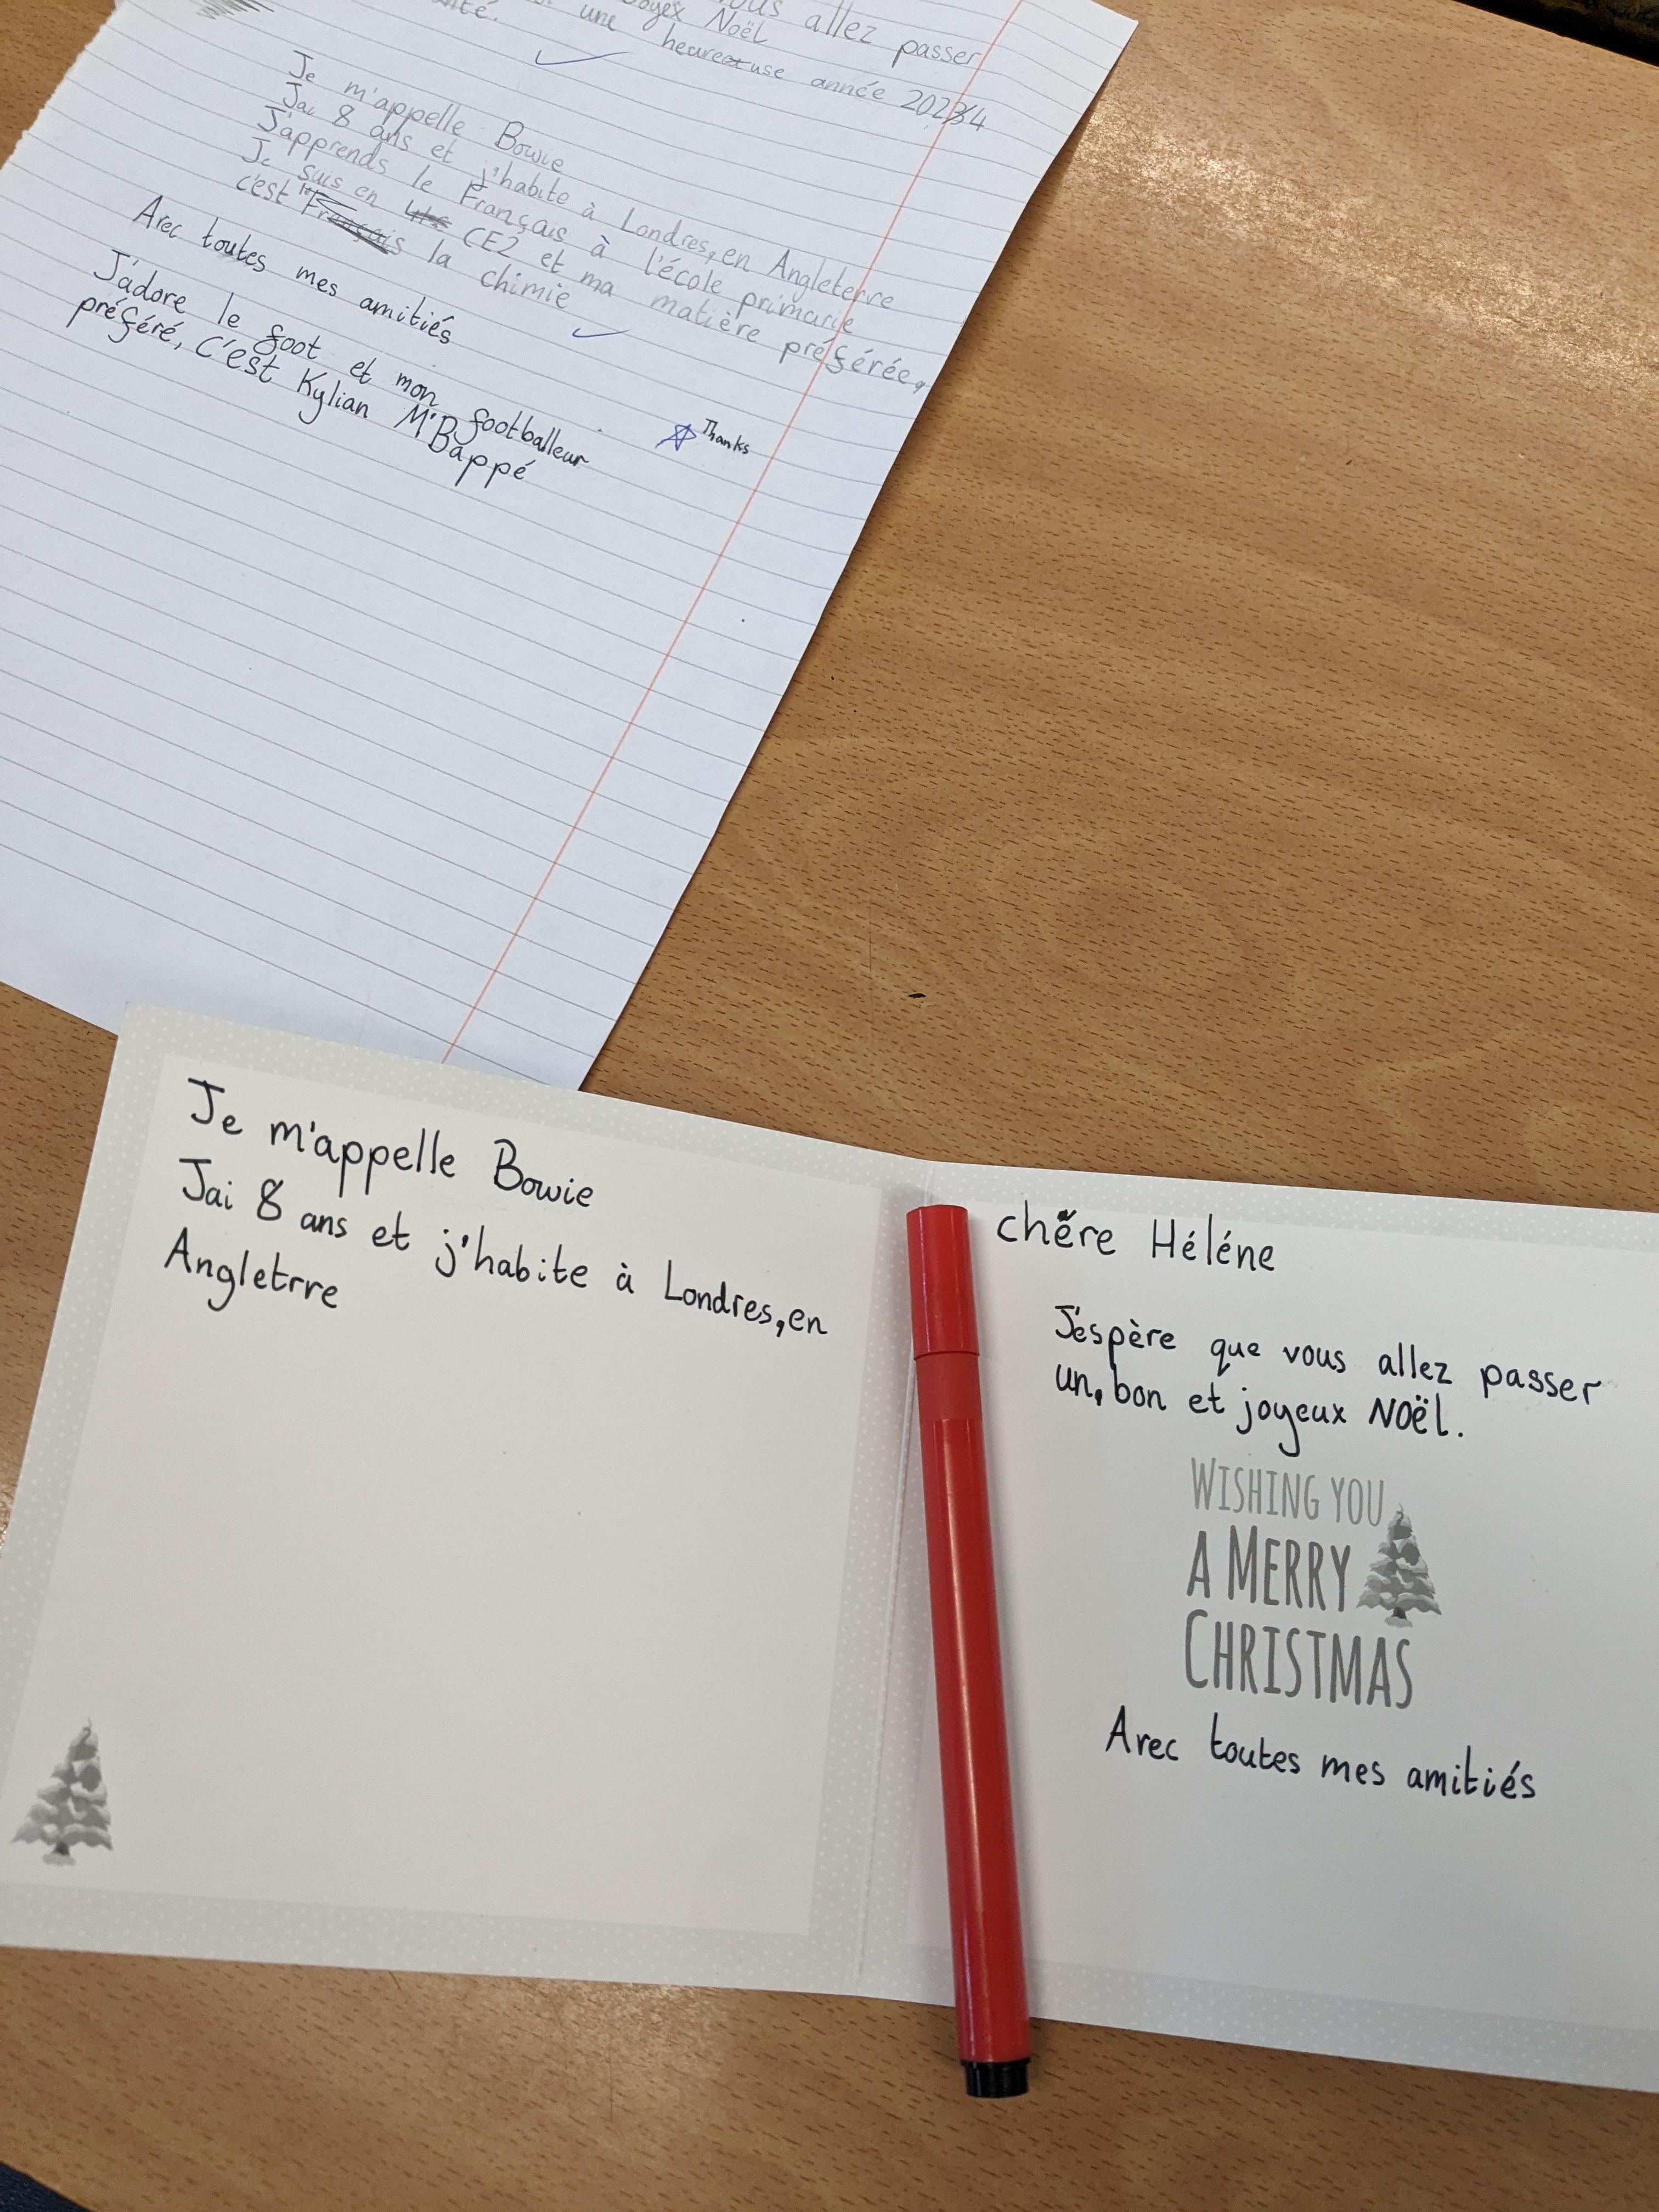 vous allez passer
Noël
une heureuse année 2024
Je m'appelle Bowie
Jai 8 ans et j'habite à Londres, en Angleterre
J'apprends le Français à l'école primarie
Je suis en CE2 et ma matière préférée,
c'est la chimie
Avec toutes mes amitiés
J'adore le foot et mon footballeur
préféré, c'est Kylian M'Bappé
Thanks
Je m'appelle Bowie
Jai 8 ans et j'habite à Londres, en
Angletrre
chère Héléne
J'espère que vous allez passer
un, bon et joyeux NOël.
WISHING YOU
A MERRY
CHRISTMAS
Avec toutes mes amitiés